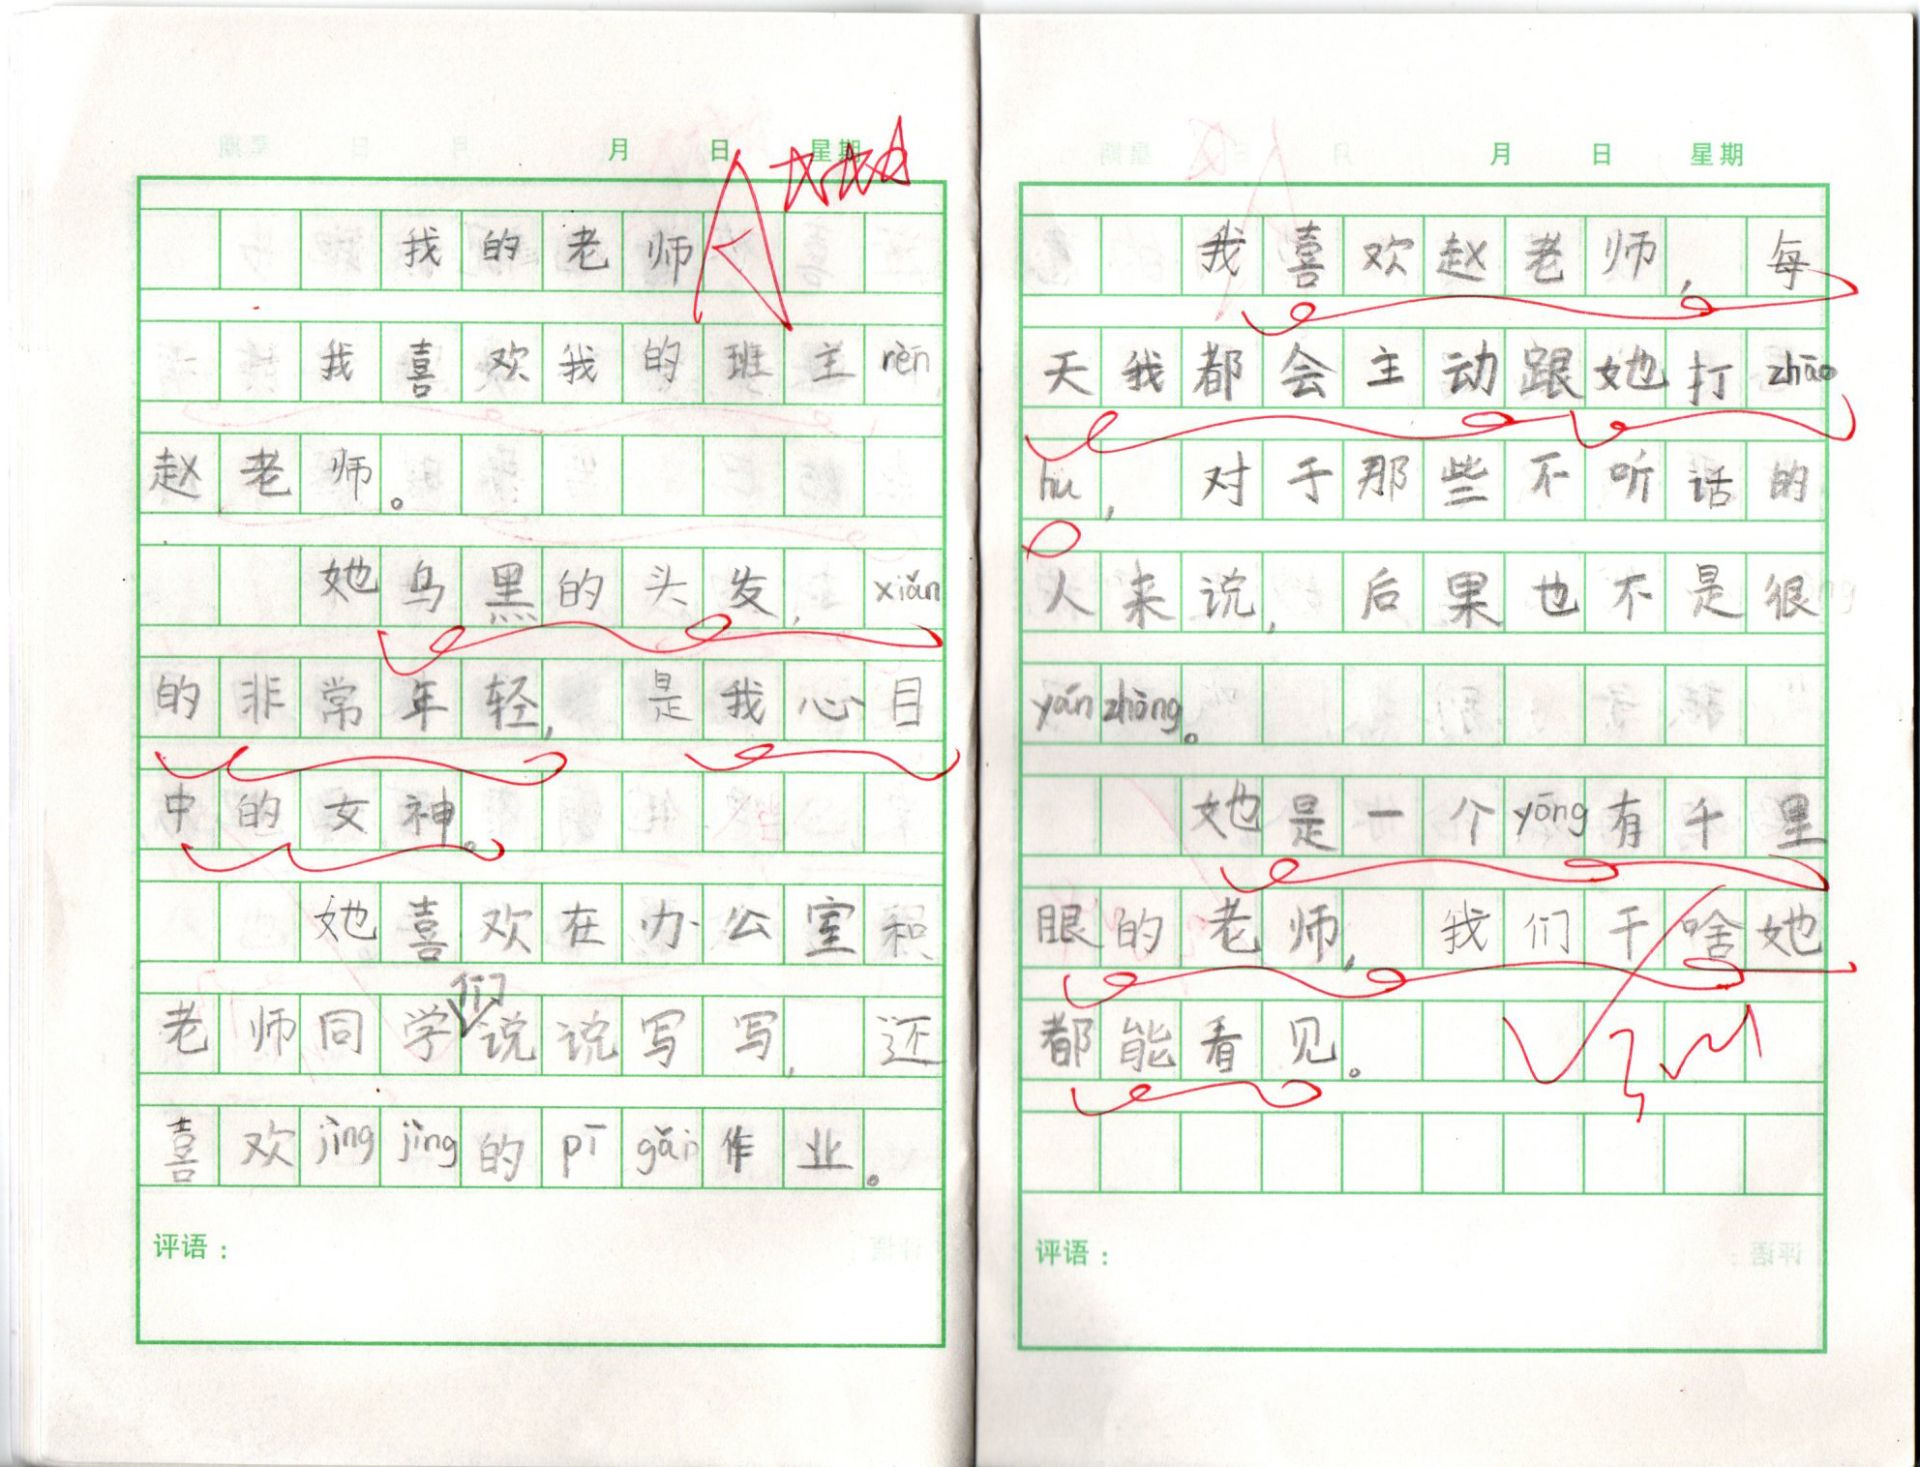 月 日 星期
我的老师
我喜欢我的班主rèn
赵老师。
她乌黑的头发，xiǎn
的非常年轻，是我心目
中的女神。
她喜欢在办公室和
老师同学们说说写写，还
喜欢jìngjìng的pīgǎi作业。
评语：
月 日 星期
我喜欢赵老师，每
天我都会主动跟她打zhāo
hu，对于那些不听话的
人来说，后果也不是很
yánzhòng。
她是一个yōng有千里
眼的老师，我们干啥她
都能看见。
评语：